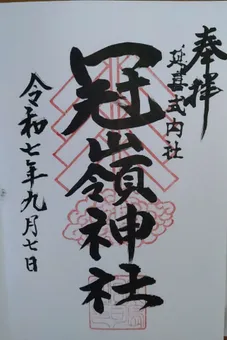 奉拝
延喜式内社
冠嶺神社
令和七年九月七日